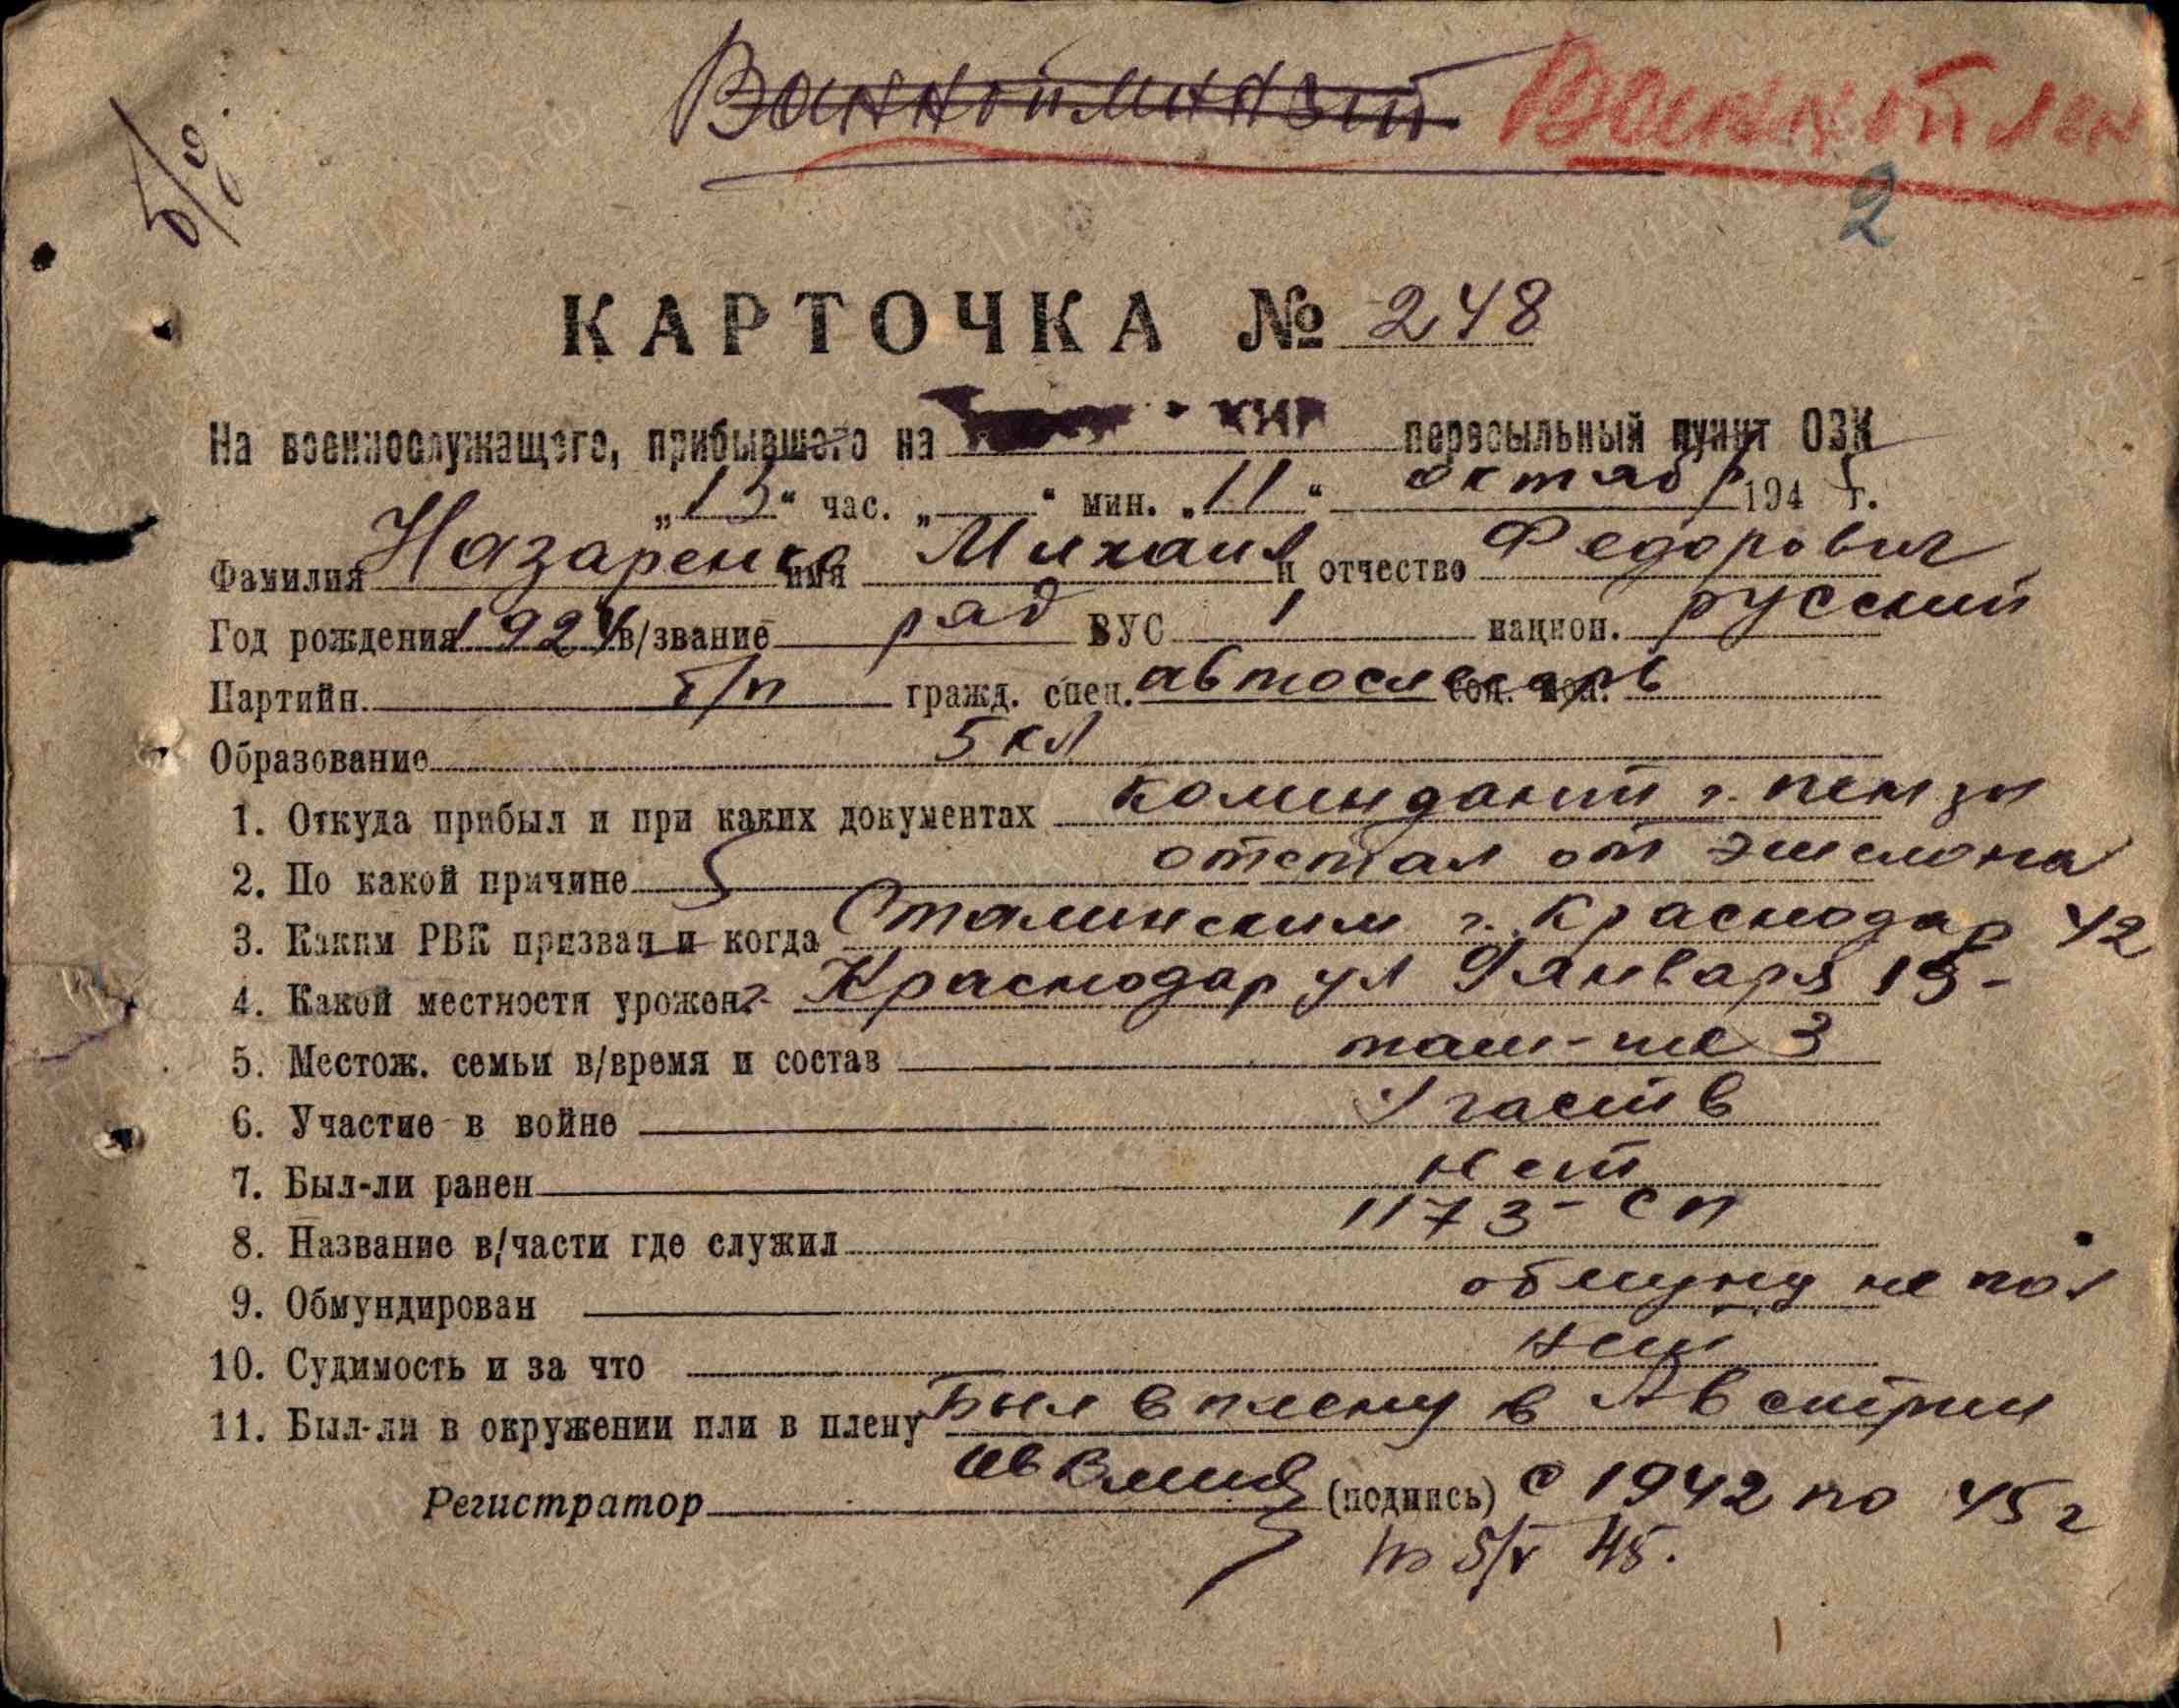 Военнопленный Военноплен
б/о.
2
КАРТОЧКА № 248
На военнослужащего, прибывшего на пересыльный пункт ОЗК
„15“ час. „—“ мин. „11“ октабр 1945 г.
Фамилия Назаренко имя Михаил и отчество Федорович
Год рождения 1924 в/звание ряд ВУС 1 национ. русский
Партийн. б/п гражд. спец. автослесарь соц. пол.
Образование 5 кл
1. Откуда прибыл и при каких документах комендант г. пензы
2. По какой причине отстал от эшелона
3. Каким РВК призван и когда Сталинским г. Краснодар 42
4. Какой местности урожен. г. Краснодар ул 9 января 15-
5. Местож. семьи в/время и состав там-же 3
6. Участие в войне Участв
7. Был-ли ранен нет
8. Название в/части где служил 1173-сп
9. Обмундирован обмунд не пол
10. Судимость и за что нет
11. Был-ли в окружении или в плену Был в плену в Австрии
Регистратор (подпись) с 1942 по 45 г
по 5/V 45.